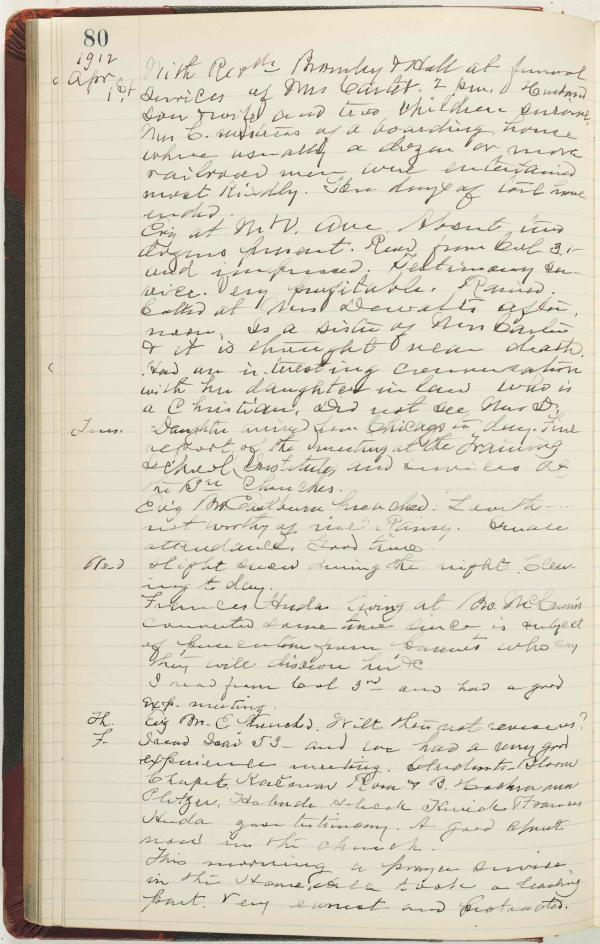 80
1912
Apr
1st
With Revs Bromley & Hall at funeral
services of Mrs Carter. 2 p.m. Husband
Son wife and two children survive.
Mrs C. mistress of a boarding house
where usually a dozen or more
railroad men were entertained
most kindly. Ten days of
ended.
Evg at Mt V. Ave. About two
dozens present. Read from Col 3.1-
and impressed. Testimony ser-
vice. Very profitable. Rained.
Called at Mrs Dewalts after-
noon. Is a sister of Mrs Carter
& it is thought near death.
Had an interesting conversation
with her daughter in law who is
a Christian. Did not see Mrs D.
Tues. Daughter arrived from Chicago to day. Fine
report of the meeting at the Training
School Institute, and services at
the Churches.
Evg Bro Eastburn preached:
not worthy of me" Rainy. Small
attendance. Good time.
Wed Slight snow during the night. Clear-
ing to day.
Frances Huda living at Bro.
converted some time since is subject
of persecution from parents who say
they will disown her &c
I read from Col 3rd and had a good
exp. meeting.
Th. Evg Bro. E. preached. Wilt thou not revive us?
F. Read Isai 53- and we had a very good
experience meeting. Students Bloom
Rosa & B.
Frances
Huda gave testimony. A good spirit
now in the church.
This morning a prayer service
in the Home, took a leading
part. Very earnest and protracted.